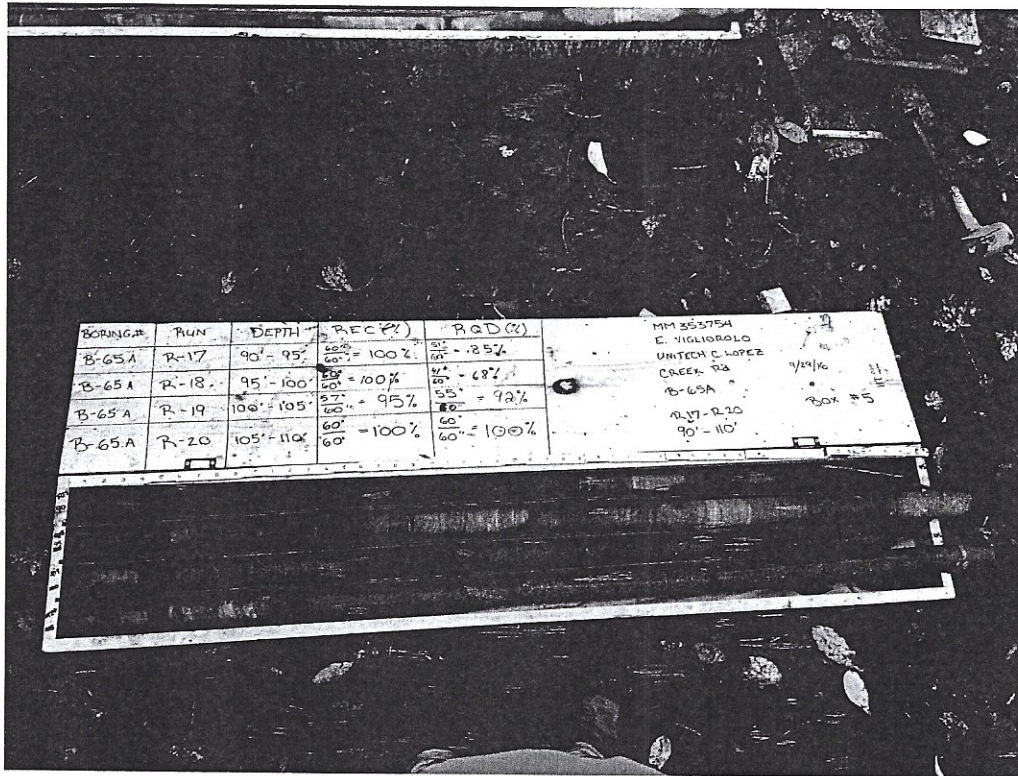 BORING# RUN DEPTH REC (%) RQD (%)
B-65A R-17 90'-95' 60"/60" = 100% 51"/60" = 85%
B-65A R-18 95'-100' 60"/60" = 100% 41"/60" = 68%
B-65A R-19 100'-105' 57"/60" = 95% 55"/60" = 92%
B-65A R-20 105'-110' 60"/60" = 100% 60"/60" = 100%
MM 353754
E. VIGLIOROLO
UNITECH C. LOPEZ
CREEK Rd 9/29/16
B-65A BOX #5
R17-R20
90'-110'